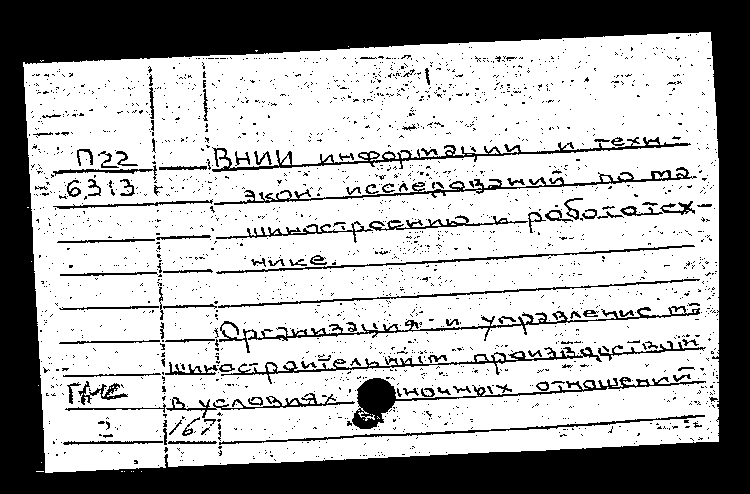 П22 ВНИИ информации и техн.-
6313 экон. исследований по ма
шиностроению и работотех-
нике.
Организация и управление ма
шиностроительным производством
в условиях ночных отношений
2 167